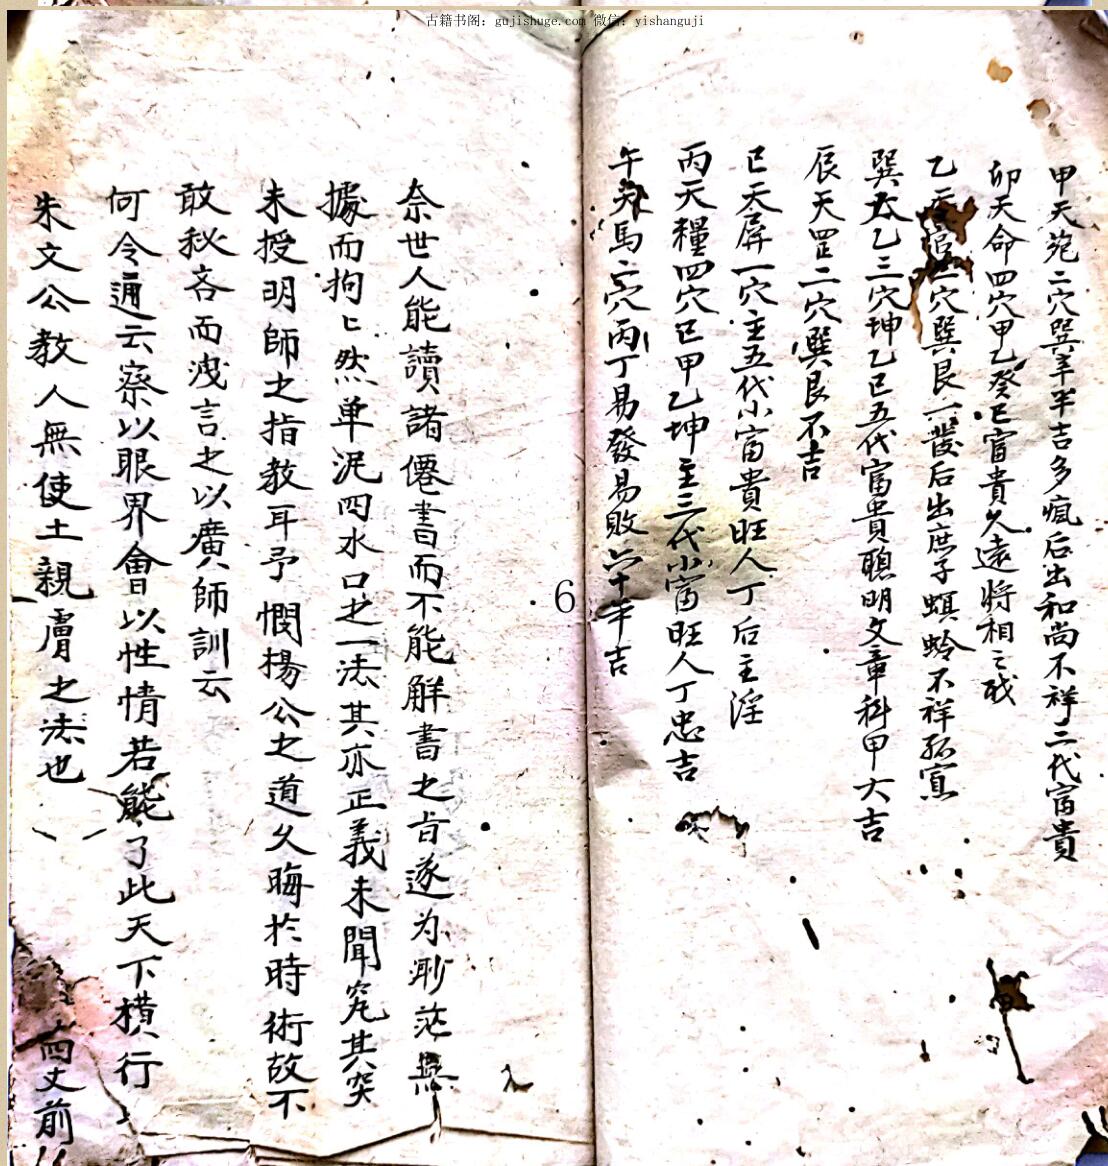 古籍书阁：gujishuge.com 微信：yishanguji
甲天苑二穴巽羊半吉多瘋后出和尚不祥二代富貴
卯天命四穴甲乙癸巳富貴久遠將相之职
乙天官二穴巽艮一發后出庶子螟蛉不祥孤寡
巽太乙三穴坤乙巳五代富貴聰明文章科甲大吉
辰天罡二穴巽艮不吉
巳天屏一穴主五代小富貴旺人丁后主淫
丙天糧四穴巳甲乙坤主三代小富旺人丁忠吉
午天馬二穴丙丁易發易敗六十年吉
6
奈世人能讀諸僊書而不能解書之旨遂为渺茫無
據而拘匕然单泥四水口之一法其亦正義未聞究其突
未授明師之指教耳予憫揚公之道久晦於時術故不
敢秘吝而洩言之以廣師訓云
何令通云察以眼界會以性情若能了此天下横行
朱文公教人無使土親膚之法也 四丈前